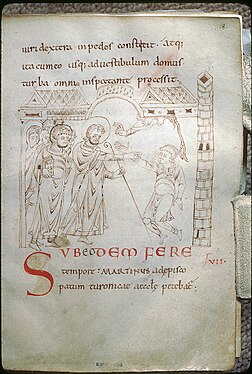 iuri dextera in pedes constitit. atq;
ita cum eo usq; ad uestibulum domus
turba omni inspectante processit.
SUB eoDEM FERE
XVII.
tempore MARTINUS ad episco
patum turonicae aecclę petebat